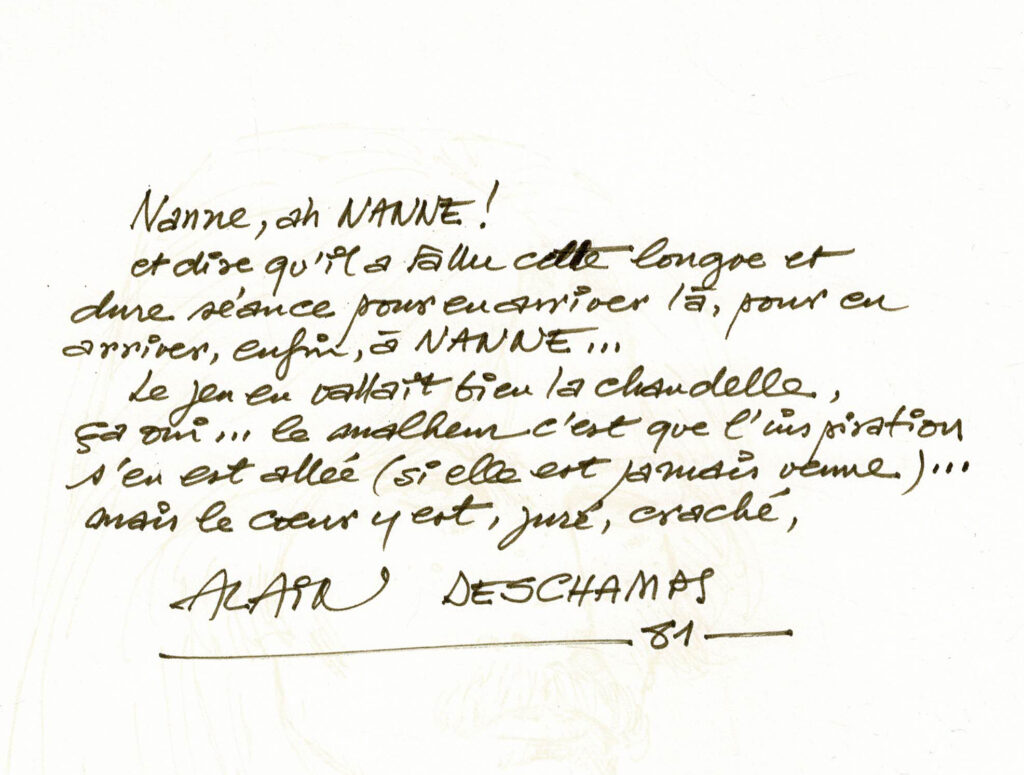 Nanne, ah NANNE !
et dire qu'il a fallu cette longue et
dure séance pour en arriver là, pour en
arriver, enfin, à NANNE...
Le jeu en vallait bien la chandelle,
ça oui... le malheur c'est que l'inspiration
s'en est allée (si elle est jamais venue)...
mais le cœur y est, juré, craché,
ALAIN DESCHAMPS
81